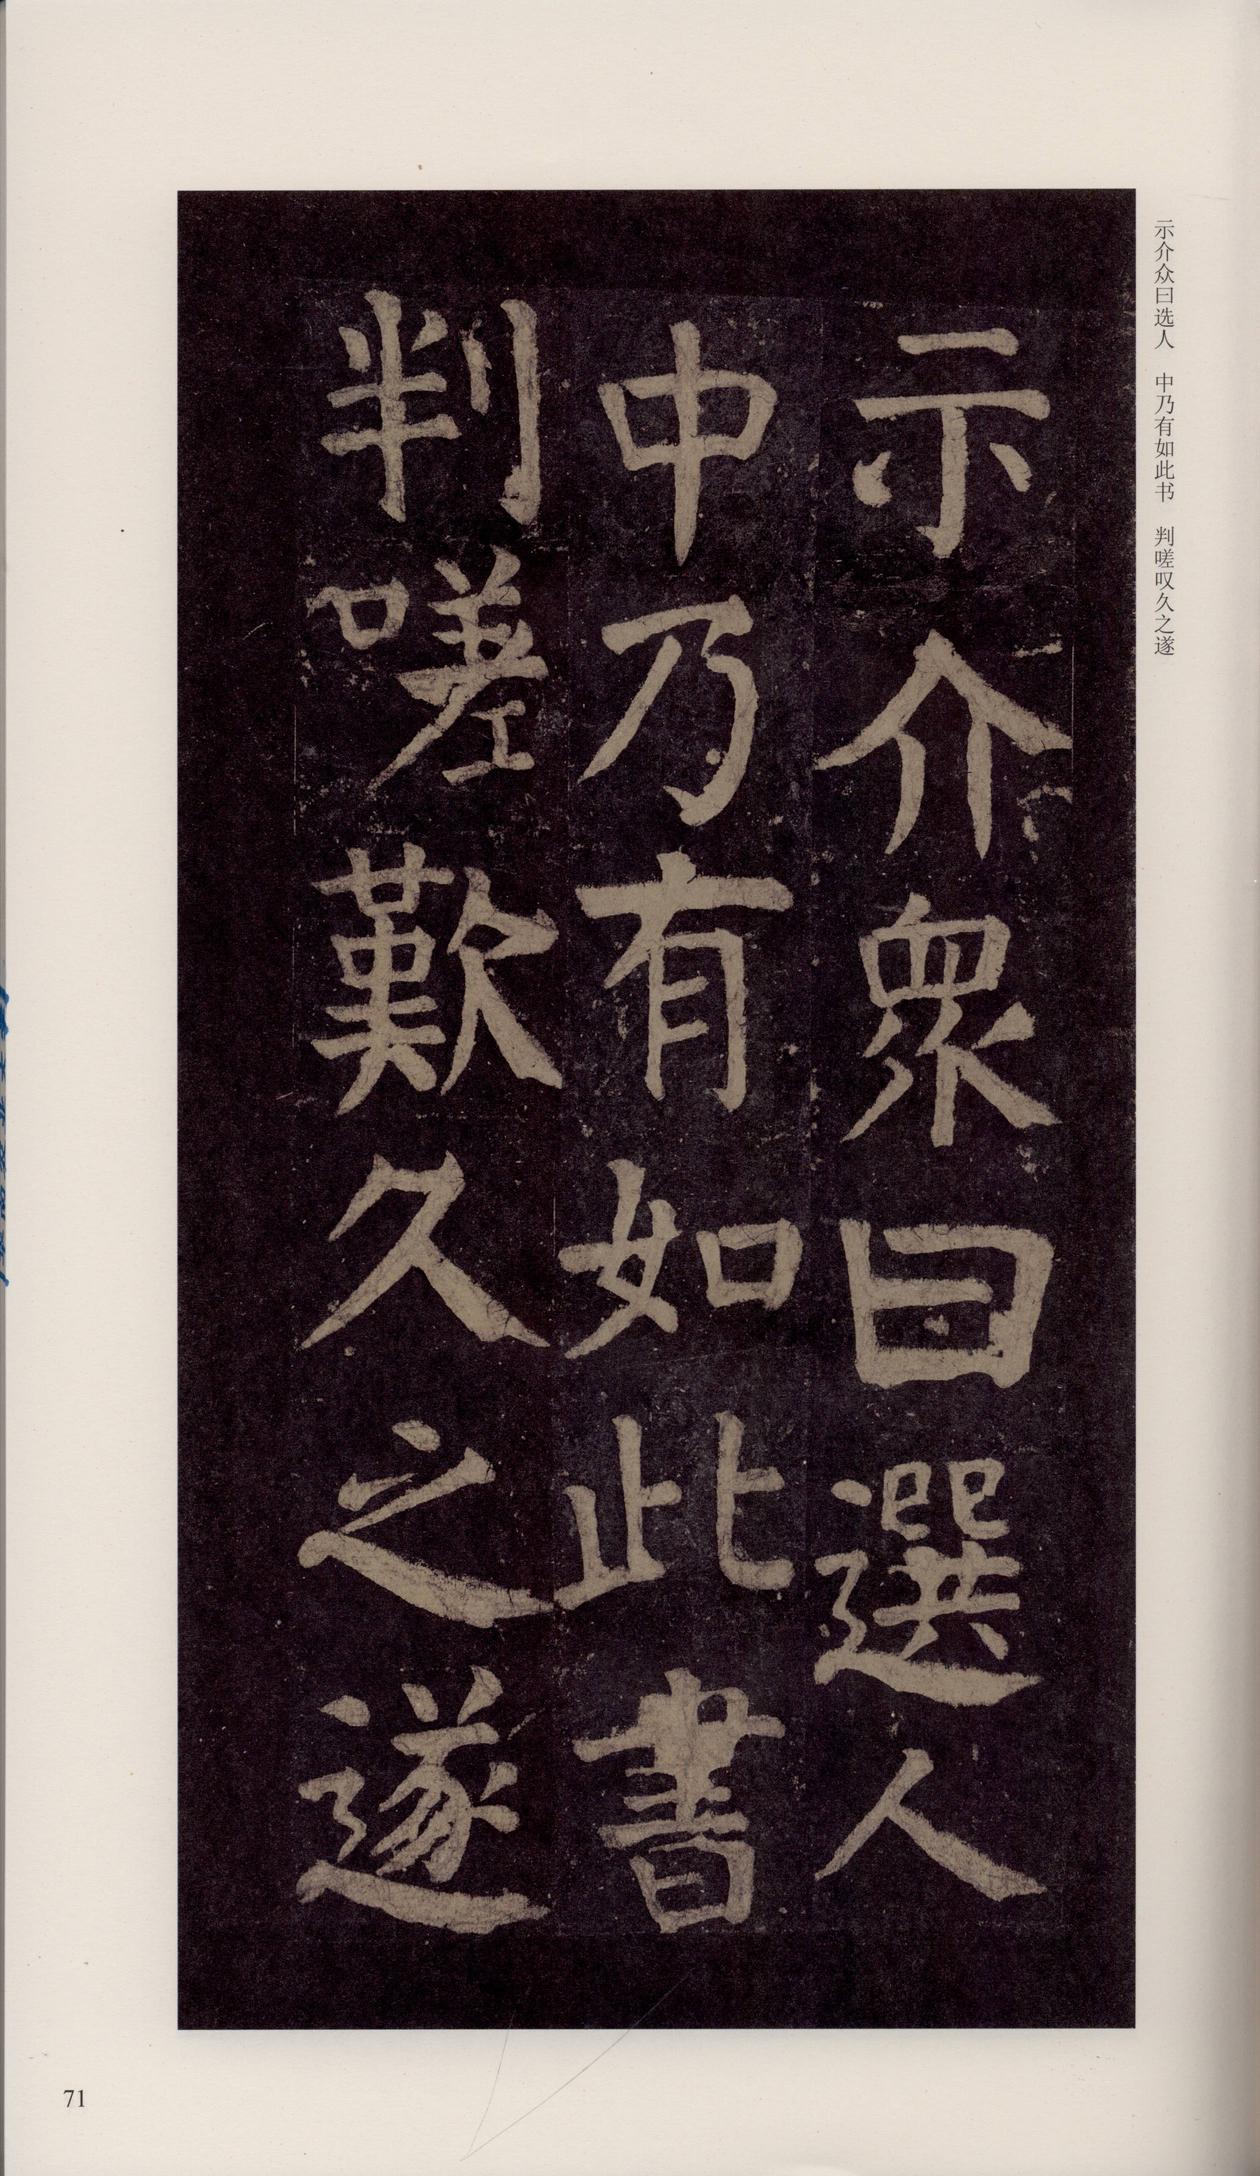 示介众曰选人　中乃有如此书　判嗟叹久之遂
示介衆曰選人
中乃有如此書
判嗟歎久之遂
71